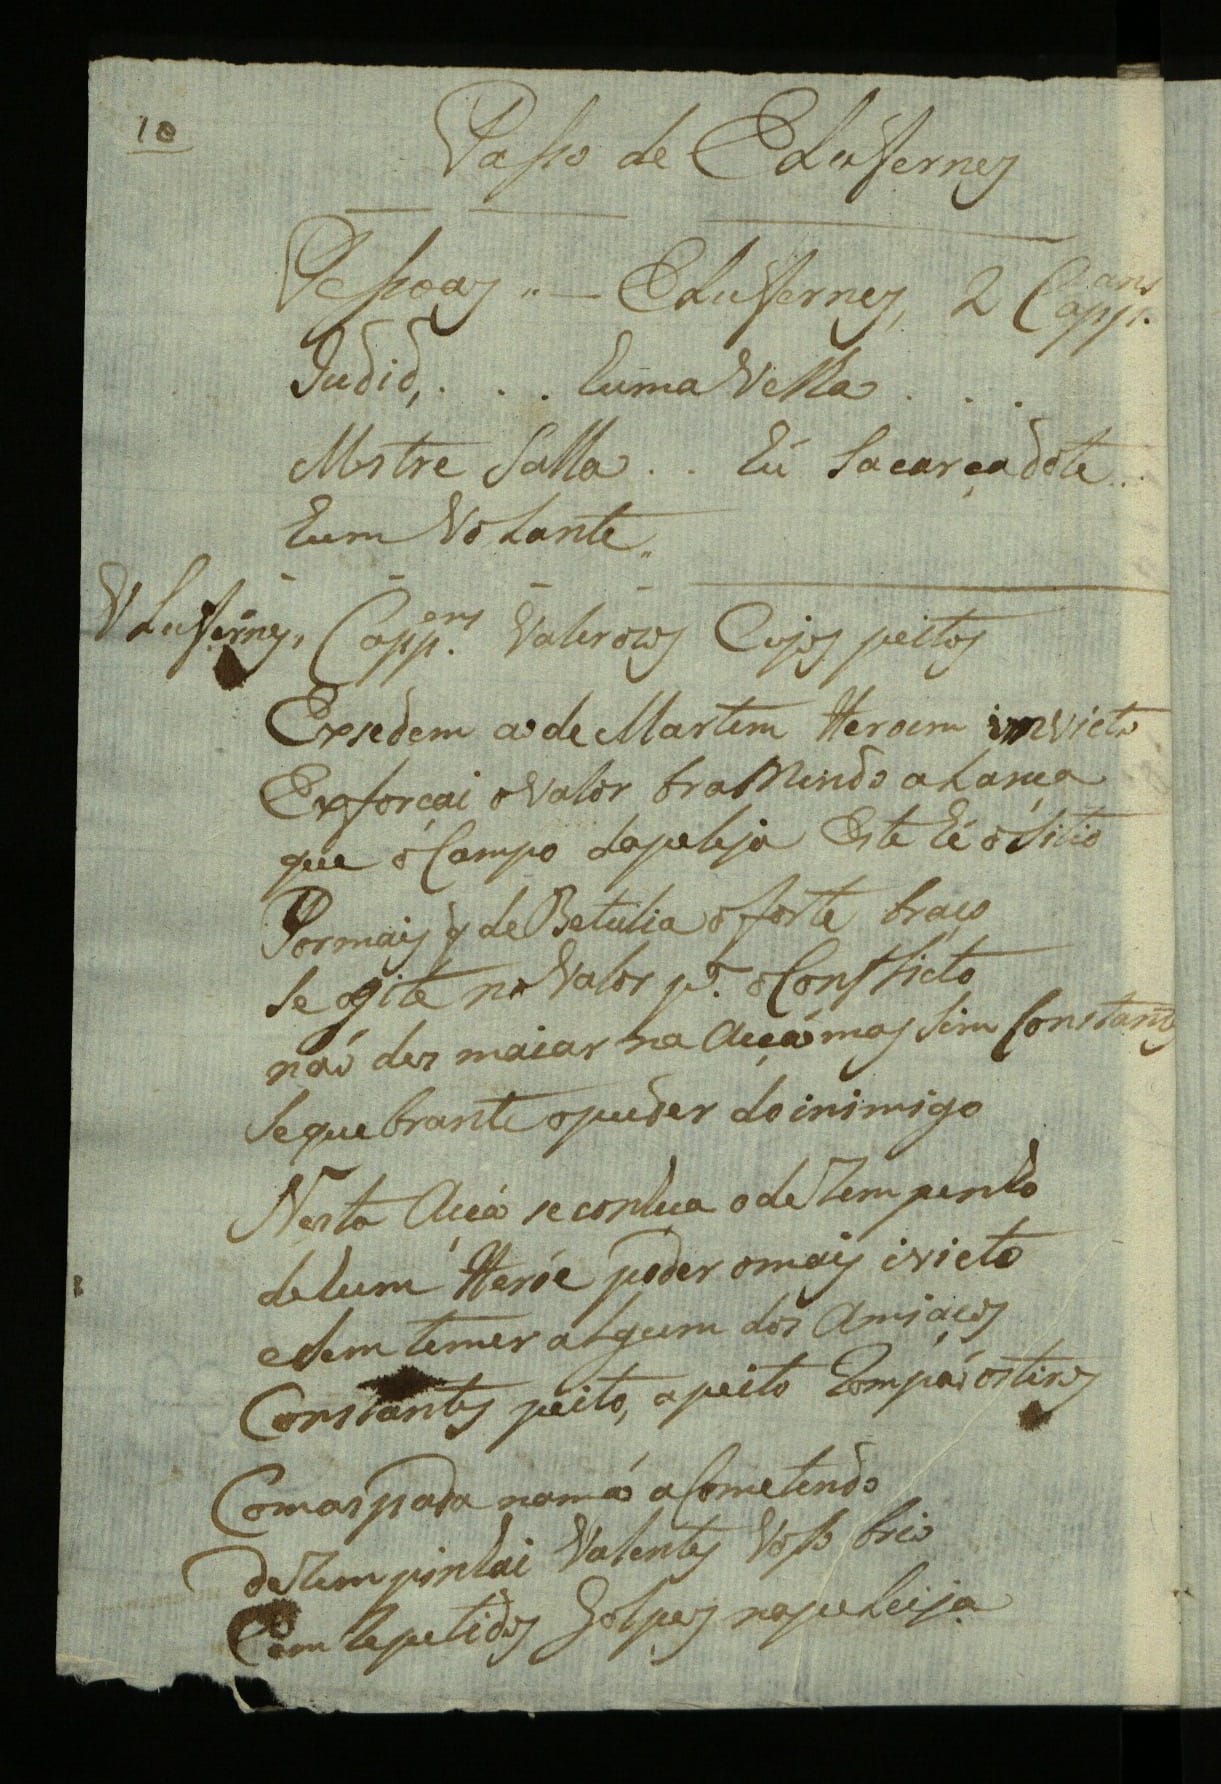 10
Passo de Eluferney
Pessoas ,,— Eluferney, 2 Capp.ans
Judid, . . . huma Velha . . .
Mestre Salla . . hú Sacarçadote . .
hum Volante,,
Eluferney, Capp.ens Valerozos Cujos peitos
Exsedem ao de Martem Heroem invicto
Exforçai o valor bramindo a Lança
que o Campo dapeleja Este hé o Sitio
Pormais q de Betulia o forte braço
Se agite no Valor p.a o Conflicto
não des maiar na Acçao mas Sim Constantes
Se que brante o puder do inimigo
Nesta Acçá se conhea o dezempenho
de hum Heróe poder o mais ivicto
e Sem temer algum dos Amiaços
Constantes peito, a peito Rompão os tiros
Com aspada na mão aCometendo
dezempinhai Valentes Vosso brio
Com Repetidos golpes na peleija